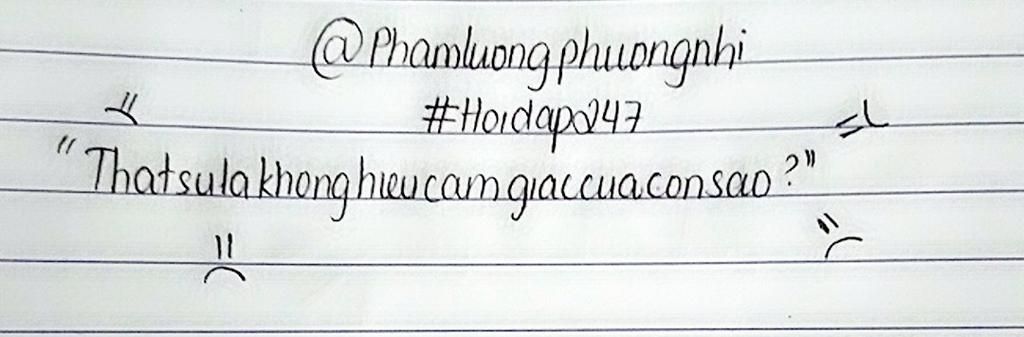 @Phamluongphuongnhi
#Hoidap247
"Thatsulakhonghieucamgiaccuaconsao?"